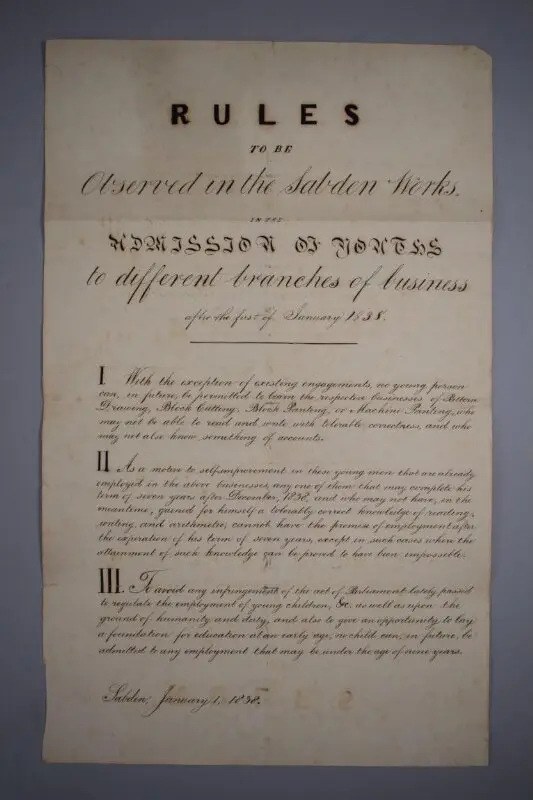 RULES
TO BE
Observed in the Sabden Works.
IN THE
ADMISSION OF YOUTHS
to different branches of business
after the first of January 1838.
I With the exception of existing engagements, no young person
can, in future, be permitted to learn the respective businesses of Pattern
Drawing, Block Cutting, Block Printing, or Machine Printing, who
may not be able to read and write with tolerable correctness, and who
may not also know something of accounts.
II As a motive to self-improvement in those young men that are already
employed in the above businesses, any one of them that may complete his
term of seven years after December, 1838, and who may not have, in the
meantime, gained for himself a tolerably correct knowledge of reading,
writing, and arithmetic, cannot have the promise of employment after
the expiration of his term of seven years, except in such cases where the
attainment of such knowledge can be proved to have been impossible.
III. To avoid any infringement of the act of Parliament lately passed
to regulate the employment of young children, &c. as well as upon the
ground of humanity and duty, and also to give an opportunity to lay
a foundation for education at an early age, no child can, in future, be
admitted to any employment that may be under the age of nine years.
Sabden, January 1, 1838.